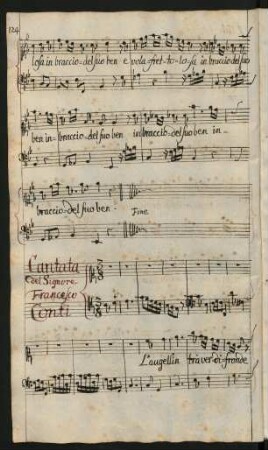 124
losa in braccio del suo ben e vola fret-to-lo-sa in braccio del suo
ben in braccio del suo ben in braccio del suo ben in-
braccio del suo ben. Fine
Cantata
Del Signore
Francesco
Conti
L'augellin tra verdi fronde